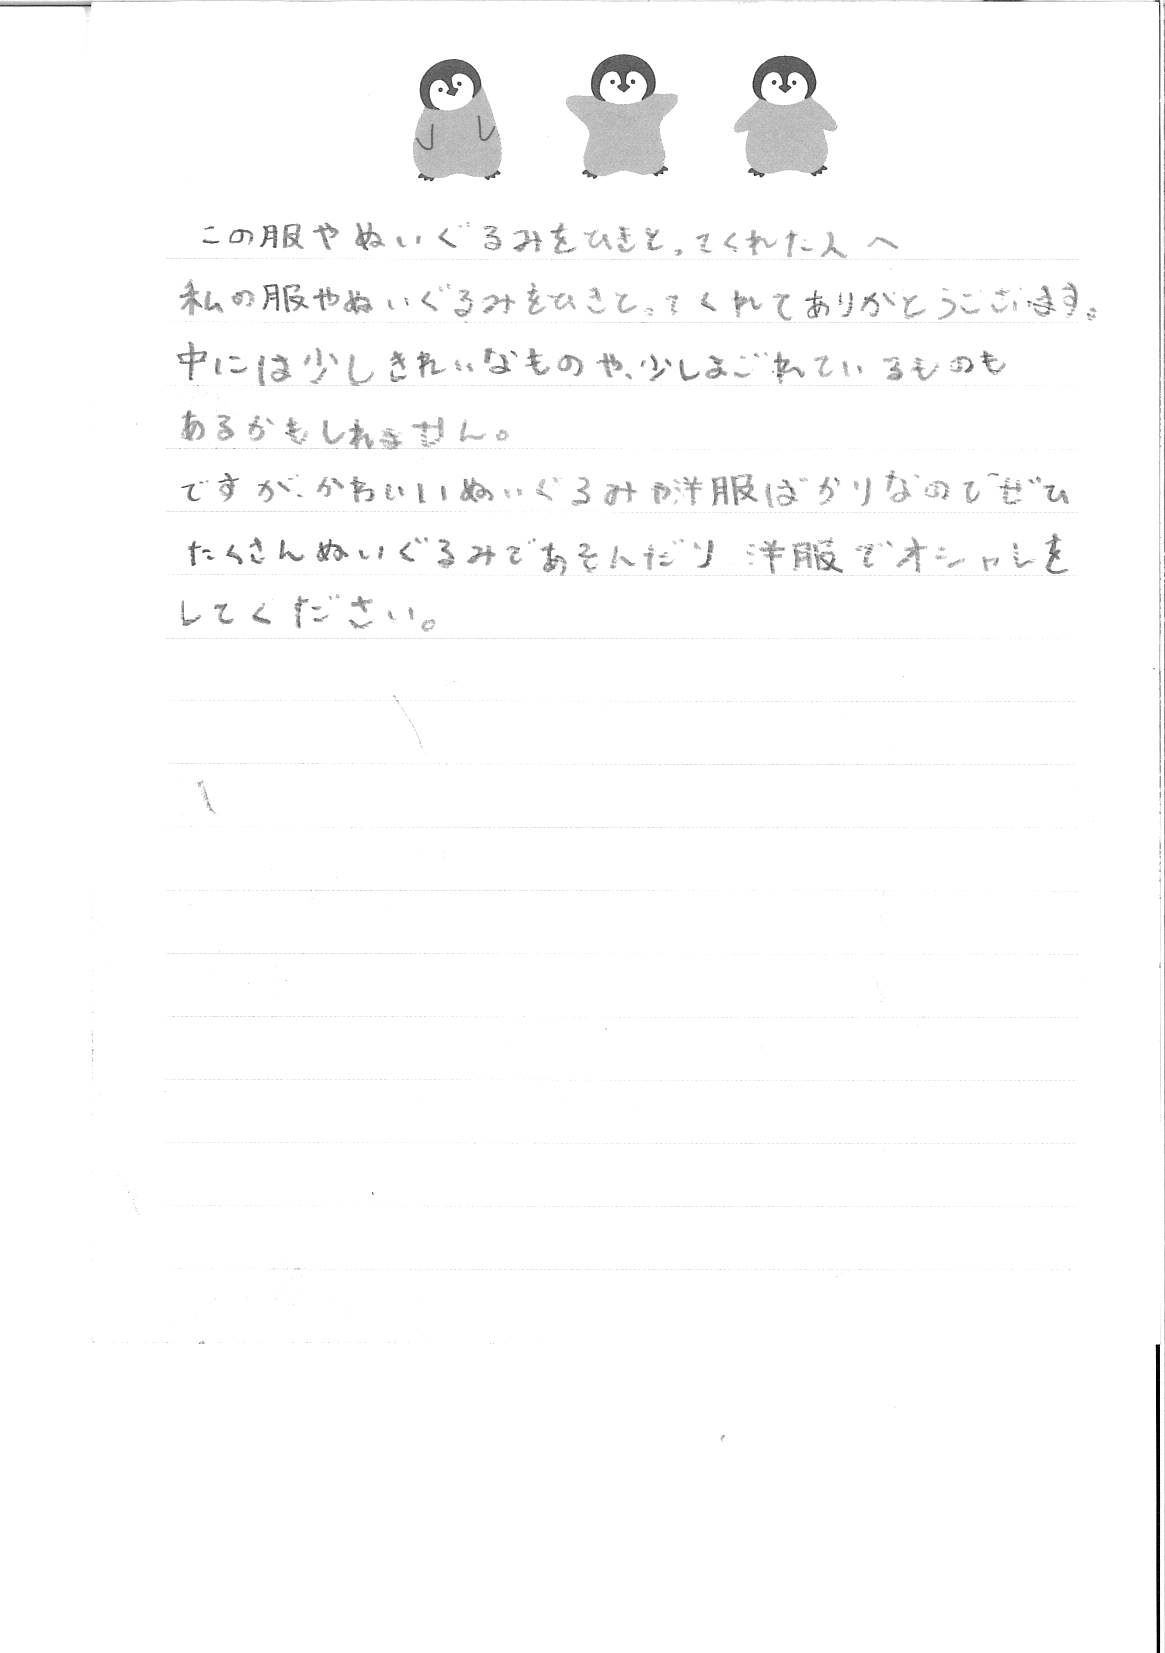 この服やぬいぐるみをひきとってくれた人へ
私の服やぬいぐるみをひきとってくれてありがとうございます。
中には少しきれいなものや、少しよごれているものも
あるかもしれません。
ですが、かわいいぬいぐるみや洋服ばかりなのでぜひ
たくさんぬいぐるみであそんだり 洋服でオシャレを
してください。